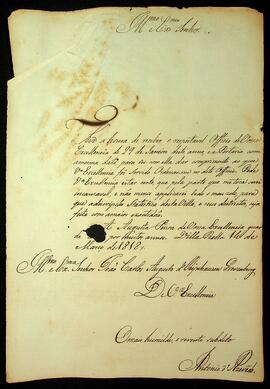 Illmo e Exmo Senhor
Tive a honra de receber o respeitavel Officio de Vossa
Excellencia de 29 de Janeiro deste anno, e a Portaria com
a mesma data para eu com elle dar cumprimento ao que
Va Excellencia foi Servido Ordenar-me no dito Officio. Pode
Va Excellencia estar certo, que pela parte que me toca serei
incansavel, e não menos applicarei todo o mais zelo, para
que a descripção Statistica desta Villa, e seus districtos, seja
feita com a maior exactidão.
A Augusta Pessoa de Vossa Excellencia guarde
por muitos annos. Villa Bella 14 de
Março de 1818.
Illmo e Exmo Senhor João Carlos Augusto d'Oeynhausen Grevemburg
De Va Excellencia
O mais humilde, e reverente subdito
Antonio